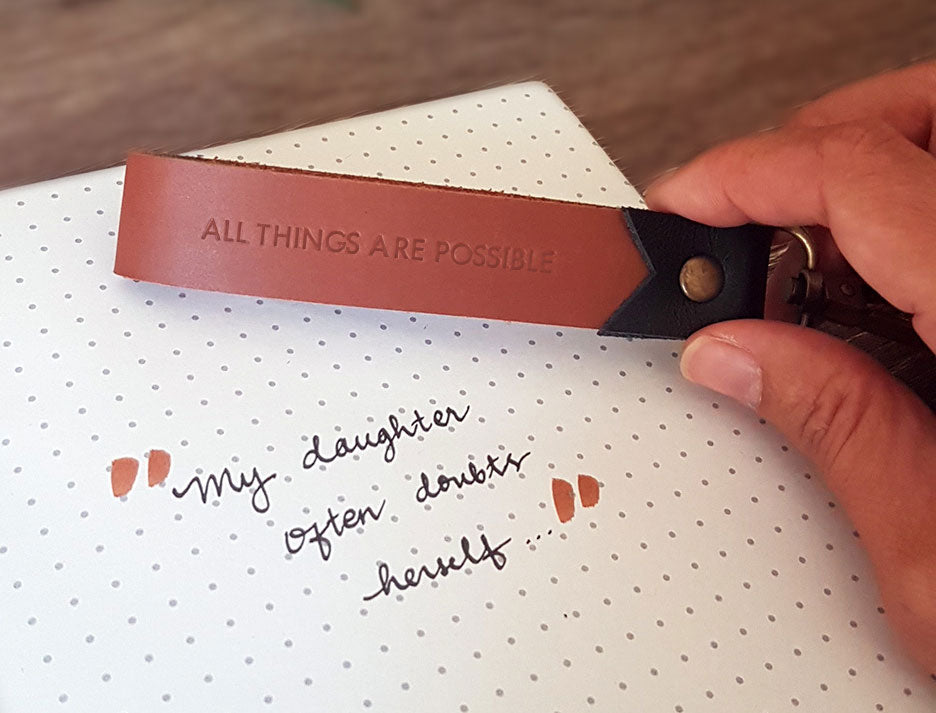 ALL THINGS ARE POSSIBLE
"My daughter
often doubts
herself..."